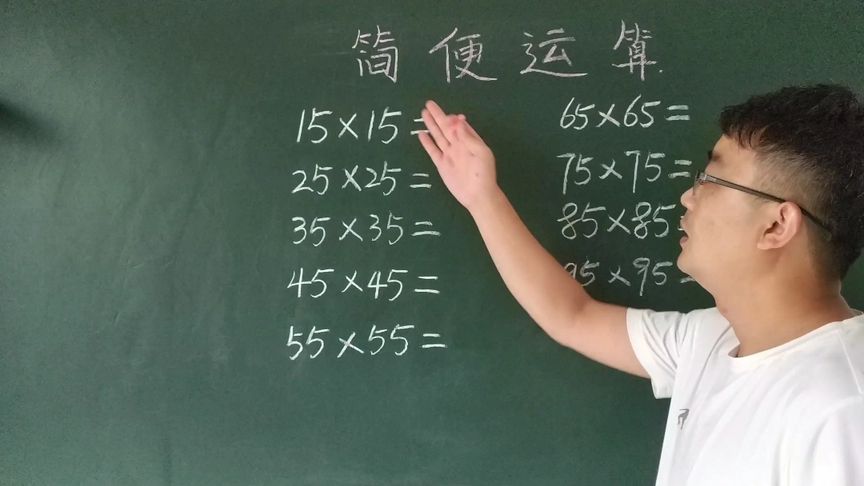 简便运算
15×15=
25×25=
35×35=
45×45=
55×55=
65×65=
75×75=
85×85=
95×95=